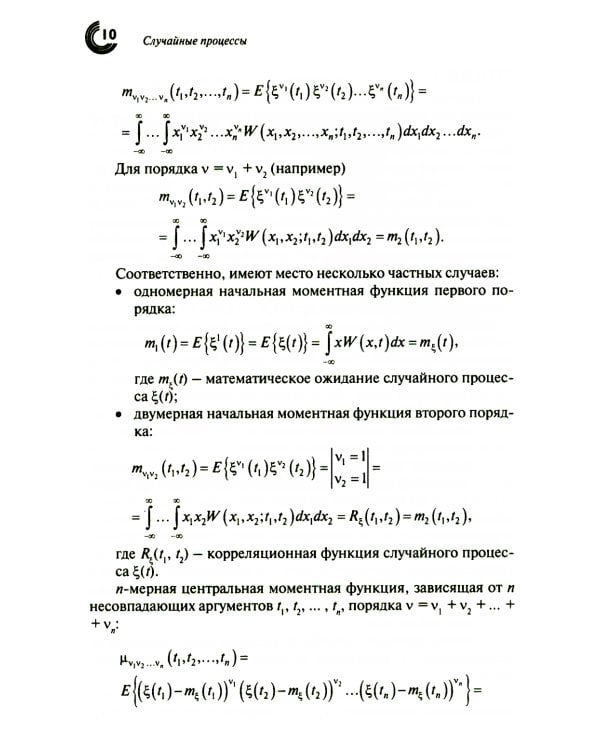 10 Случайные процессы
m_{ν₁ν₂…νₙ}(t₁,t₂,…,tₙ) = E{ξ^{ν₁}(t₁) ξ^{ν₂}(t₂)…ξ^{νₙ}(tₙ)} =
= ∫_{-∞}^{∞} … ∫_{-∞}^{∞} x₁^{ν₁}x₂^{ν₂}…xₙ^{νₙ}W(x₁,x₂,…,xₙ;t₁,t₂,…,tₙ)dx₁dx₂…dxₙ.
Для порядка ν = ν₁ + ν₂ (например)
m_{ν₁ν₂}(t₁,t₂) = E{ξ^{ν₁}(t₁)ξ^{ν₂}(t₂)} =
= ∫_{-∞}^{∞} … ∫_{-∞}^{∞} x₁^{ν₁}x₂^{ν₂}W(x₁,x₂;t₁,t₂)dx₁dx₂ = m₂(t₁,t₂).
Соответственно, имеют место несколько частных случаев:
• одномерная начальная моментная функция первого по-
рядка:
m₁(t) = E{ξ¹(t)} = E{ξ(t)} = ∫_{-∞}^{∞} xW(x,t)dx = m_ξ(t),
где m_ξ(t) – математическое ожидание случайного процес-
са ξ(t);
• двумерная начальная моментная функция второго поряд-
ка:
m_{ν₁ν₂}(t₁,t₂) = E{ξ^{ν₁}(t₁)ξ^{ν₂}(t₂)} = |ν₁ = 1 ν₂ = 1| =
= ∫_{-∞}^{∞} … ∫_{-∞}^{∞} x₁x₂W(x₁,x₂;t₁,t₂)dx₁dx₂ = R_ξ(t₁,t₂) = m₂(t₁,t₂),
где R_ξ(t₁, t₂) – корреляционная функция случайного процес-
са ξ(t).
n-мерная центральная моментная функция, зависящая от n
несовпадающих аргументов t₁, t₂, ... , tₙ, порядка ν = ν₁ + ν₂ + ... +
+ νₙ:
μ_{ν₁ν₂…νₙ}(t₁,t₂,…,tₙ) =
E{(ξ(t₁)–m_ξ(t₁))^{ν₁}(ξ(t₂)–m_ξ(t₂))^{ν₂}…(ξ(tₙ)–m_ξ(tₙ))^{νₙ}} =